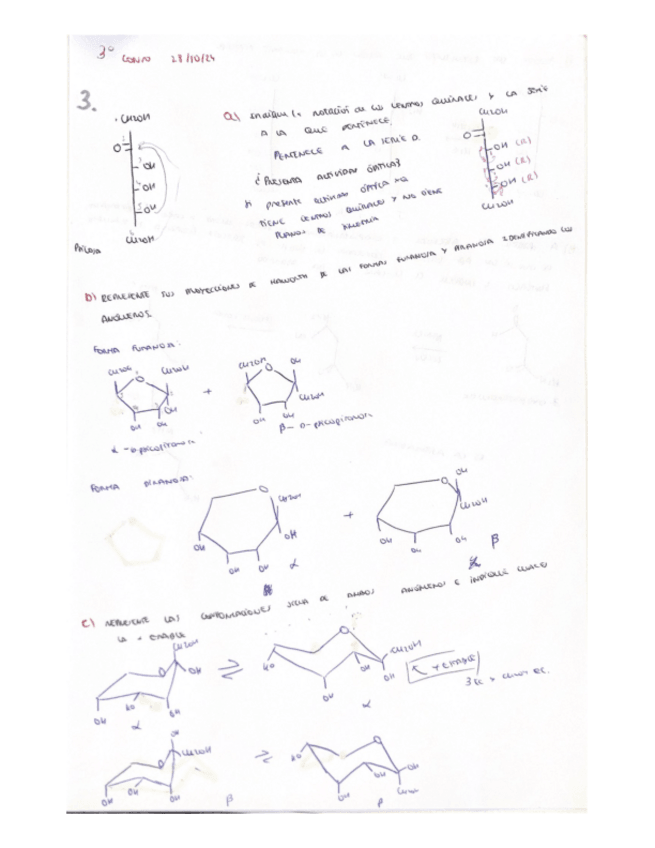 3º
28/10/24
3.
CH2OH
O=
OH
OH
OH
CH2OH
a) INDIQUE LA NOTACIÓN DE LOS CENTROS QUIRALES Y LA SERIE
A LA QUE PERTENECE.
PERTENECE A LA SERIE D.
¿PRESENTA ACTIVIDAD ÓPTICA?
SI PRESENTA ACTIVIDAD ÓPTICA
TIENE CENTROS QUIRALES Y NO TIENE
PLANOS DE SIMETRIA
CH2OH
O=
OH (R)
OH (R)
OH (R)
CH2OH
b) REPRESENTE SUS PROYECCIONES DE HAWORTH DE LAS FORMAS FURANOSA Y PIRANOSA IDENTIFICANDO LOS
ANÓMEROS.
FORMA FURANOSA:
CH2OH
O
CH2OH
OH
OH
OH
+
CH2OH
O
OH
CH2OH
OH
OH
FORMA PIRANOSA:
O
CH2OH
OH
OH
OH
OH
α
+
O
OH
CH2OH
OH
OH
OH
β
c) REPRESENTE LAS CONFORMACIONES SILLA DE AMBOS ANÓMEROS E INDIQUE CUAL ES
LA + ESTABLE
CH2OH
O
OH
OH
HO
OH
α
O
HO
CH2OH
OH
OH
OH
α
+ ESTABLE
OH
O
CH2OH
OH
HO
OH
β
HO
O
OH
OH
OH
CH2OH
β